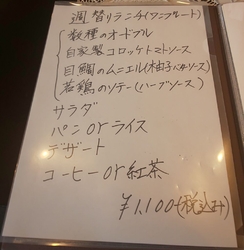 週替りランチ(ワンプレート)
数種のオードブル
自家製コロッケトマトソース
目鯛のムニエル(柚子バターソース)
若鶏のソテー(ハーブソース)
サラダ
パンorライス
デザート
コーヒーor紅茶
¥1.100(税込み)